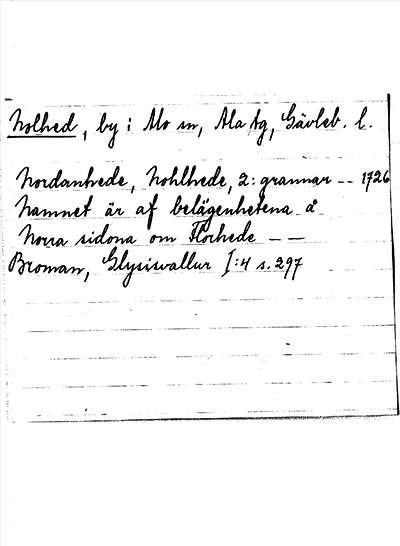 Nolhed, by i Mo sn, Ala tg, Gävleb. l.
Nordanhede, Nohlhede, 2: grannar -- 1726
Namnet är af belägenhetena å
Norra sidona om Florhede - -
Broman, Glysisvallur I:4 s. 297